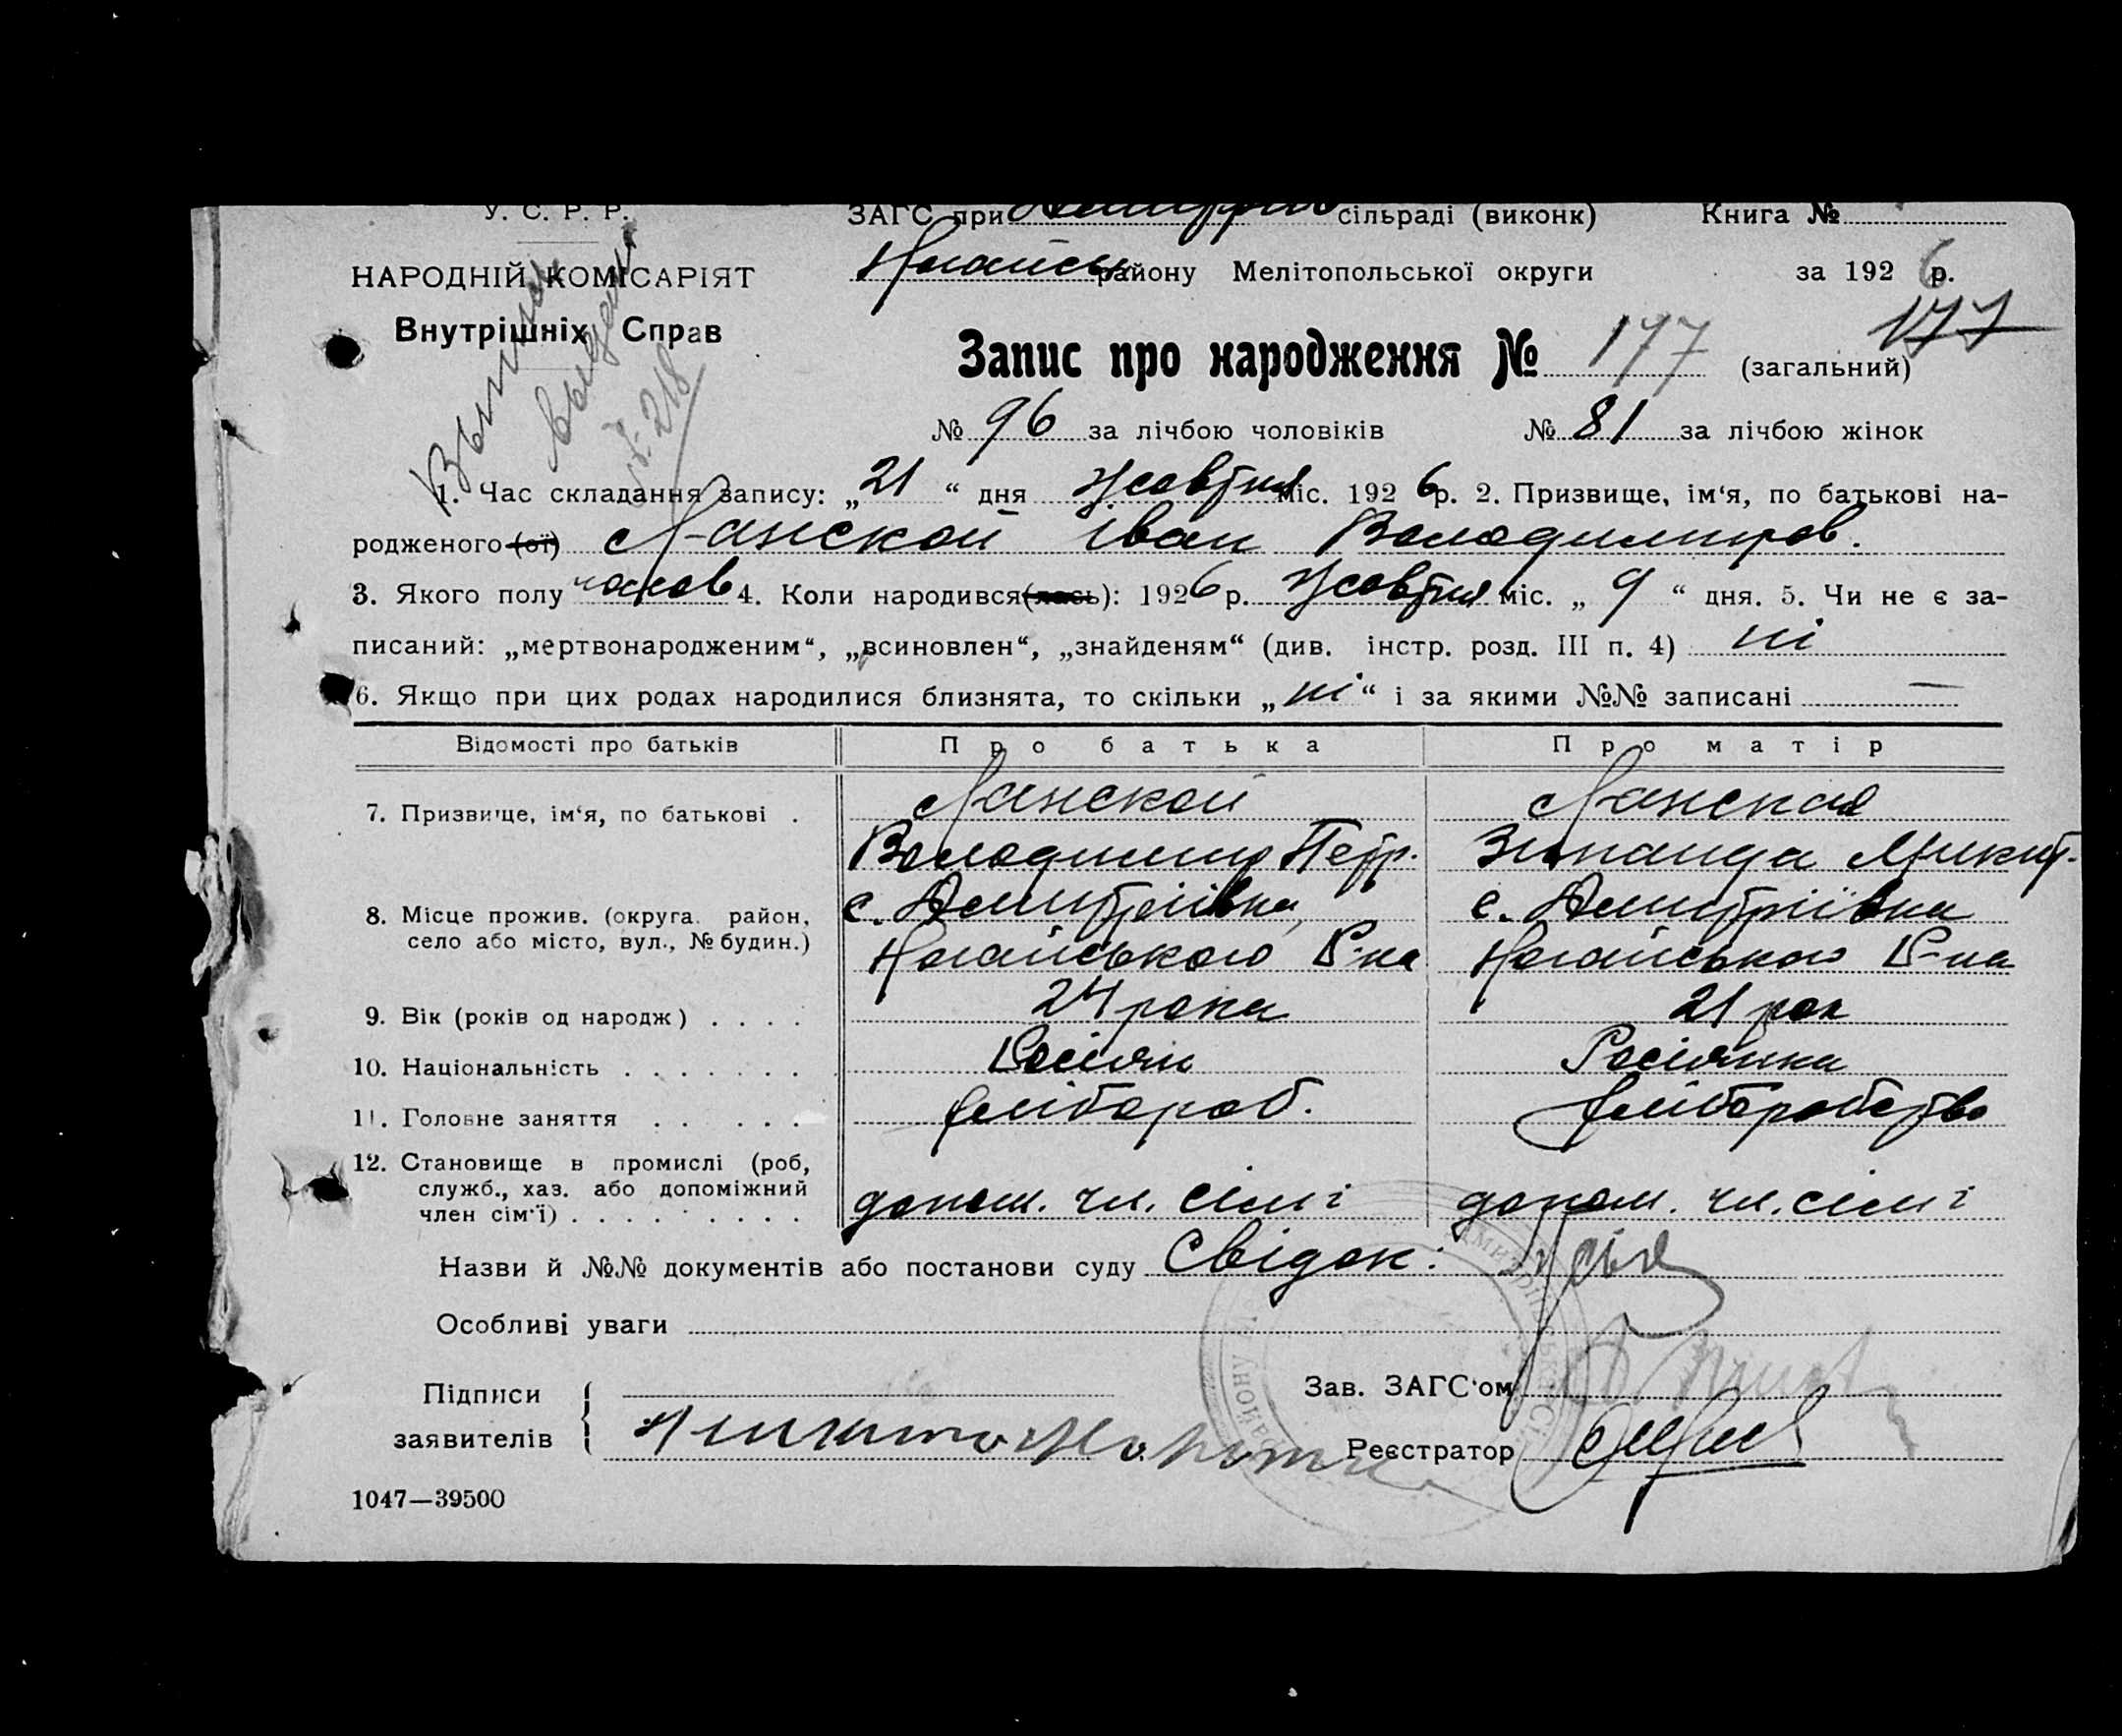 У. С. Р. Р.
ЗАГС при сільраді (виконк) Книга №
НАРОДНІЙ КОМІСАРІЯТ
Внутрішніх Справ
Ногайськ району Мелітопольської округи за 1926 р.
177
Запис про народження № 177 (загальний)
№ 96 за лічбою чоловіків № 81 за лічбою жінок
1. Час складання запису: „21“ дня Жовтня міс. 1926 р. 2. Призвище, ім‘я, по батькові на-
родженого (ої) Ланской Іван Володимиров.
3. Якого полу чолов 4. Коли народився (лась): 1926 р. Жовтня міс. „9“ дня. 5. Чи не є за-
писаний: „мертвонародженим“, „всиновлен“, „знайденям“ (див. інстр. розд. III п. 4) ні
6. Якщо при цих родах народилися близнята, то скільки „ні“ і за якими №№ записані —
Відомості про батьків Про батька Про матір
7. Призвище, ім‘я, по батькові . Ланской Ланская
Володимир Петр. Зинаида Микит.
8. Місце прожив. (округа. район, село або місто, вул., № будин.) с. Дмитріївка, с. Дмитріївка
Ногайського Р-на Ногайського Р-на
9. Вік (років од народж) . . . . 24 роки 21 рок
10. Національність . . . . . . . Росіян Росіянка
11. Головне заняття . . . . . хлібороб. хліборобство
12. Становище в промислі (роб,
служб., хаз. або допоміжний
член сім‘ї) . . . . . . . . . допом. чл. сімі допом. чл. сімі
Назви й №№ документів або постанови суду Свідок:
Особливі уваги
Підписи
заявителів
Зав. ЗАГС‘ом
Никита
Реєстратор
1047—39500
Выпись
выдана
218